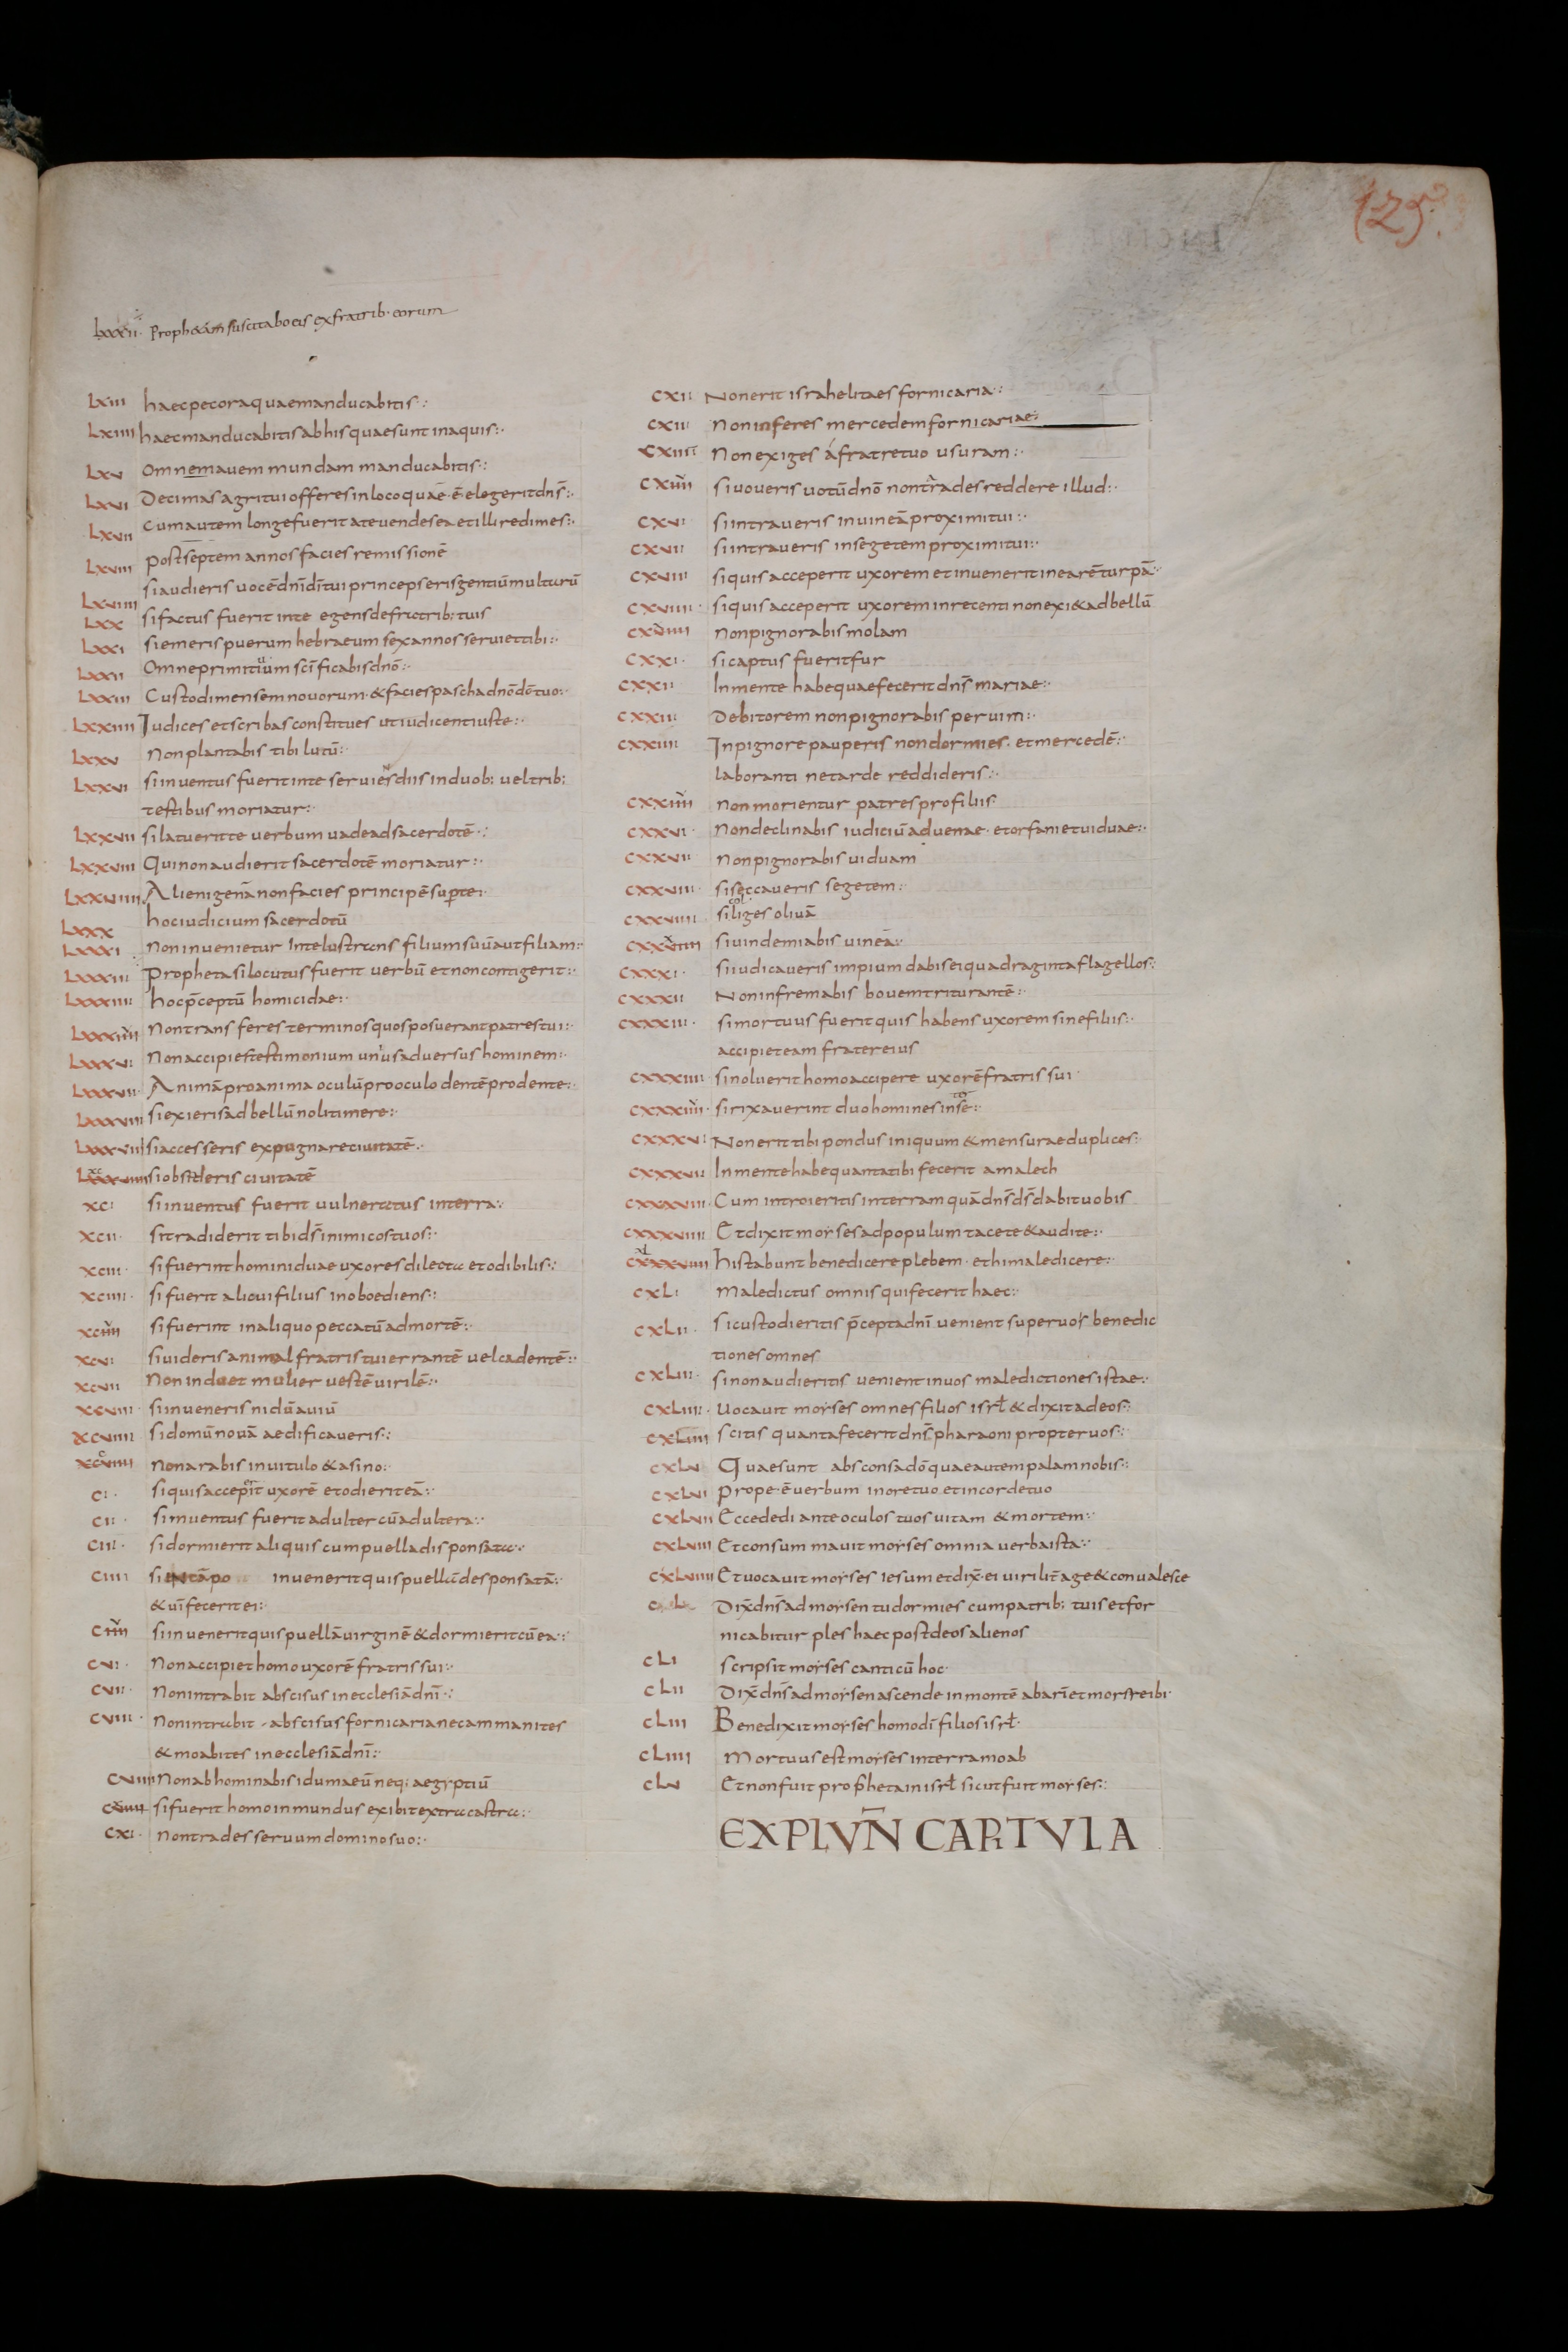 125.
lxxxii. Proph&am suscitabo eis ex fratrib. eorum
Lxiii haec pecora quae manducabitis :·
Lxiiii haec manducabitis ab his quae sunt in aquis:·
Lxv Omnem auem mundam manducabitis·:
Lxvi Decimas agri tui offeres in loco quae· ē· elegerit dn̄s:·
Lxvii cum autem longe fuerit a te uendes ea et illi redimes:·
Lxviii post septem annos facies remissionē
Lxviiii si audieris uocē dn̄i dī tui princeps eris gentiū multarū
Lxx si factus fuerit in te egens de fratrib; tuis
Lxxi si emeris puerum hebraeum sex annos seruiet tibi:·
Lxxii Omne primitiuum sc̄ificabis dnō:·
Lxxiii Custodi mensem nouorum· & facies pascha dnō dō tuo:·
Lxxiiii Iudices et scribas constitues ut iudicent iuste:·
Lxxv Non plantabis tibi lucū:·
Lxxvi si inuentus fuerit in te seruiēs diis in duob; uel trib;
testibus moriatur:·
Lxxvii si latuerit te uerbum uade ad sacerdotē·:
Lxxviii Qui non audierit sacerdotē moriatur:·
Lxxviiii Alienigenā non facies principē sup te:·
Lxxx hoc iudicium sacerdotū
Lxxxi non inuenietur in te lustrans filium suū aut filiam:·
Lxxxiii Propheta si locutus fuerit uerbū et non contigerit:·
Lxxxiiii hoc p̄ceptū homicidae:·
Lxxxiiiii Non transferes terminos quos posuerant patres tui:·
Lxxxvi Non accipies testimonium unius aduersus hominem:·
Lxxxvii Animā pro anima oculū pro oculo dentē pro dente:·
Lxxxviii si exieris ad bellū noli timere:·
Lxxxvii si accesseris expugnare ciuitatē:·
Lxxxviiii si obsederis ciuitatē
xci si inuentus fuerit uulneratus in terra:·
xcii· si tradiderit tibi d̄s inimicos tuos:·
xciii· si fuerint homini duae uxores dilecta et odibilis:·
xciiii· si fuerit alicui filius inoboediens:·
xciiiii si fuerint in aliquo peccatū ad mortē:·
xcvi si uideris animal fratris tui errantē uel cadentē:·
xcvii Non induet mulier uestē uirilē:·
xcviii si inueneris nidū auiū
xcviiii si domū nouā aedificaueris:·
xcviiii non arabis in uitulo & asino:·
ci· si quis acceperit uxorē et odierit eā:·
cii· si inuentus fuerit adulter cū adultera:·
ciii· si dormierit aliquis cum puella disponsata:·
ciiii si inuenerit quis puellā desponsatā:·
& uī fecerit ei:·
ciiiii si inuenerit quis puellā uirginē & dormierit cū ea·:
cvi· Non accipiet homo uxorē fratris sui:·
cvii· Non intrabit abscisus in ecclesiā dnī·:
cviii· Non intrabit· abscisus fornicaria nec ammanites
& moabites in ecclesiā dnī:·
cviiii Non abhominabis idumaeū neq; aegyptiū
cxiiii si fuerit homo inmundus exibit extra castra:·
cxi· non trades seruum domino suo:·
cxii Non erit israhelitaes fornicaria·:
cxii Non inferes mercedem fornicariae:·
cxiii Non exiges a fratre tuo usuram:·
cxiiii si uoueris uotū dnō non trades reddere illud:·
cxvi si intraueris in uineā proximi tui:·
cxvii si intraueris in segetem proximi tui:·
cxviii si quis acceperit uxorem et inuenerit in ea rē turpā·
cxviiii· si quis acceperit uxorem in recenti non exi& ad bellū
cxviiii non pignorabis molam
cxxi· si captus fuerit fur
cxxii In mente habe quae fecerit dn̄s mariae:·
cxxiii Debitorem non pignorabis per uim:·
cxxiiii Inpignore pauperis non dormies· et mercedē:·
laboranti ne tarde reddideris:·
cxxiiiii non morientur patres pro filiis
cxxvi· Non declinabis iudiciū aduenae· et orfani et uiduae:·
cxxvii Non pignorabis uiduam
cxxviii· si seccaueris segetem:·
cxxviiii si colliges oliuā
cxxviiii si uindemiabis uineā:·
cxxxi· si iudicaueris impium dabis ei quadraginta flagellos:·
cxxxii Non infrenabis bouem triturantē:·
cxxxiii· si mortuus fuerit quis habens uxorem sine filiis:·
accipiet eam frater eius
cxxxiiii si noluerit homo accipere uxorē fratris sui·
cxxxiiiii· si rixauerint duo homines int se:·
cxxxvi Non erit tibi pondus iniquum & mensurae duplices:·
cxxxvii In mente habe quanta tibi fecerit amalech
cxxxviii· Cum introieritis in terram quā dn̄s d̄s dabit uobis
cxxxviiii Et dixit moyses ad populum tacete & audite:·
cxxxviiii hi stabunt benedicere plebem· et hi maledicere:·
cxLi maledictus omnis qui fecerit haec:·
cxLii· si custodieritis p̄cepta dnī uenient super uos benedic
tiones omnes
cxLiii· si non audieritis uenient in uos maledictiones istae:·
cxLiiii· uocauit moyses omnes filios isrł & dixit ad eos:·
cxLiiii scitis quanta fecerit dn̄s pharaoni propter uos:·
cxLv Quae sunt absconsa dō quae autem palam nobis:·
cxLvi Prope· ē uerbum in ore tuo et in corde tuo
cxLvii Ecce dedi ante oculos tuos uitam & mortem:·
cxLviii Et consummauit moyses omnia uerba ista:·
cxLviiii Et uocauit moyses iesum et dix̄· ei uirilit̄ age & conualesce
cL Dix̄ dn̄s ad moysen tu dormies cum patrib; tuis et for
nicabitur ples haec post deos alienos
cLi scripsit moyses canticū hoc·
cLii Dix̄ dn̄s ad moysen ascende in montē abarī et morere ibi·
cLiii Benedixit moyses homo dī filios isrł·
cLiiii Mortuus est moyses in terra moab
cLv Et non fuit propheta in isrł sicut fuit moyses:·
EXPLIVN̄ CAPITVLA